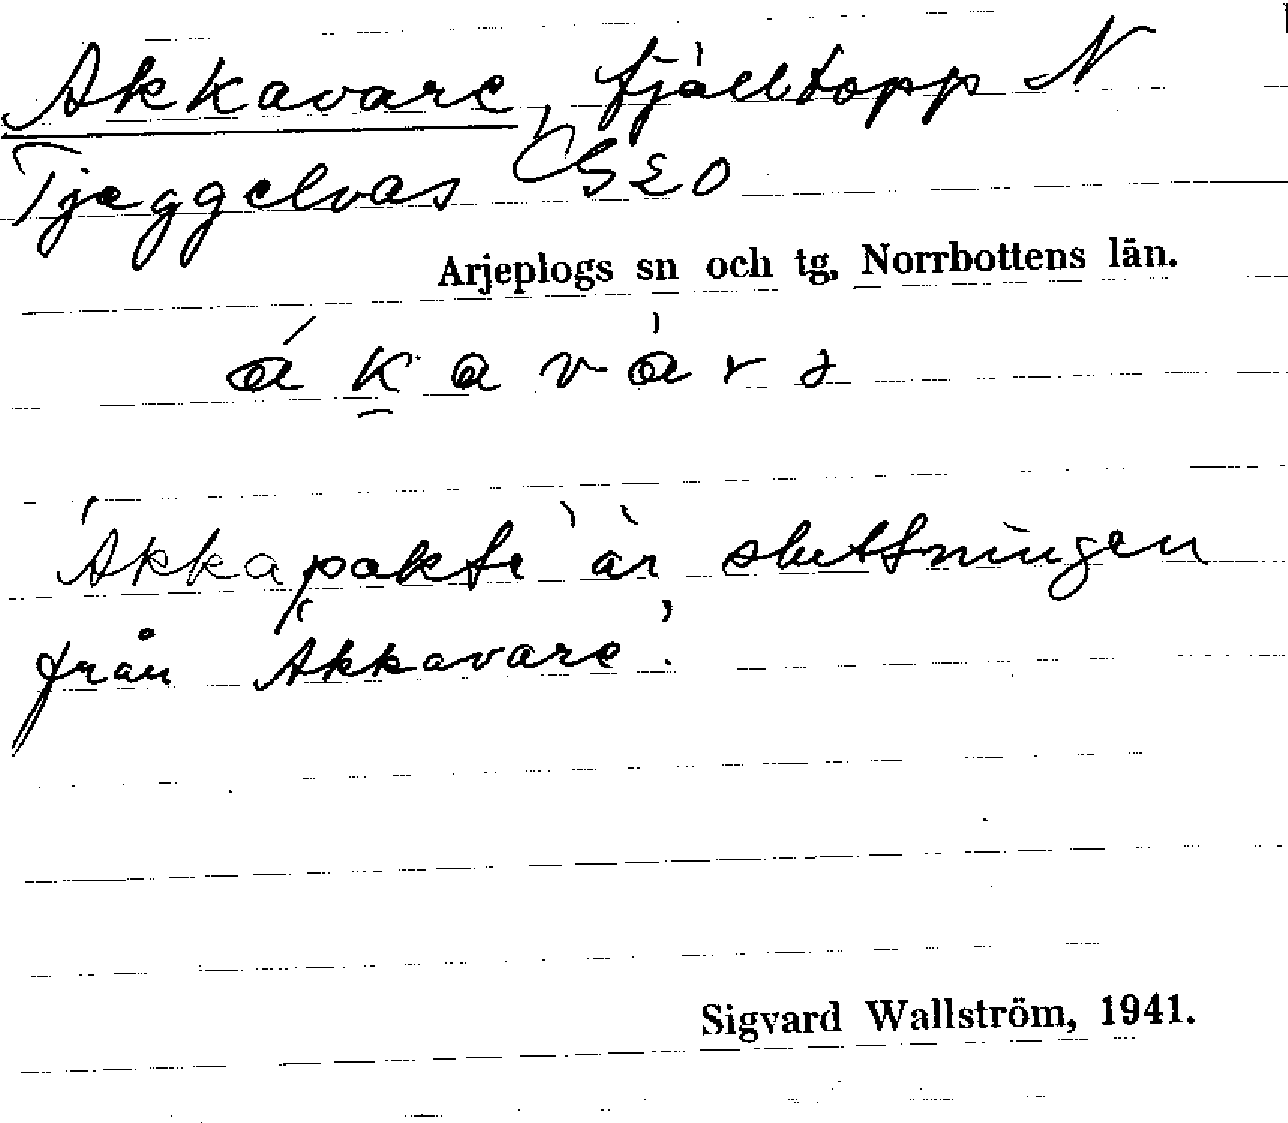 Akkavare, fjälltopp N
Tjeggelvas
Arjeplogs sn och tg, Norrbottens län.
á k a v à r ə
'Akkapakte' är sluttningen
från 'Akkavare'.
Sigvard Wallström, 1941.